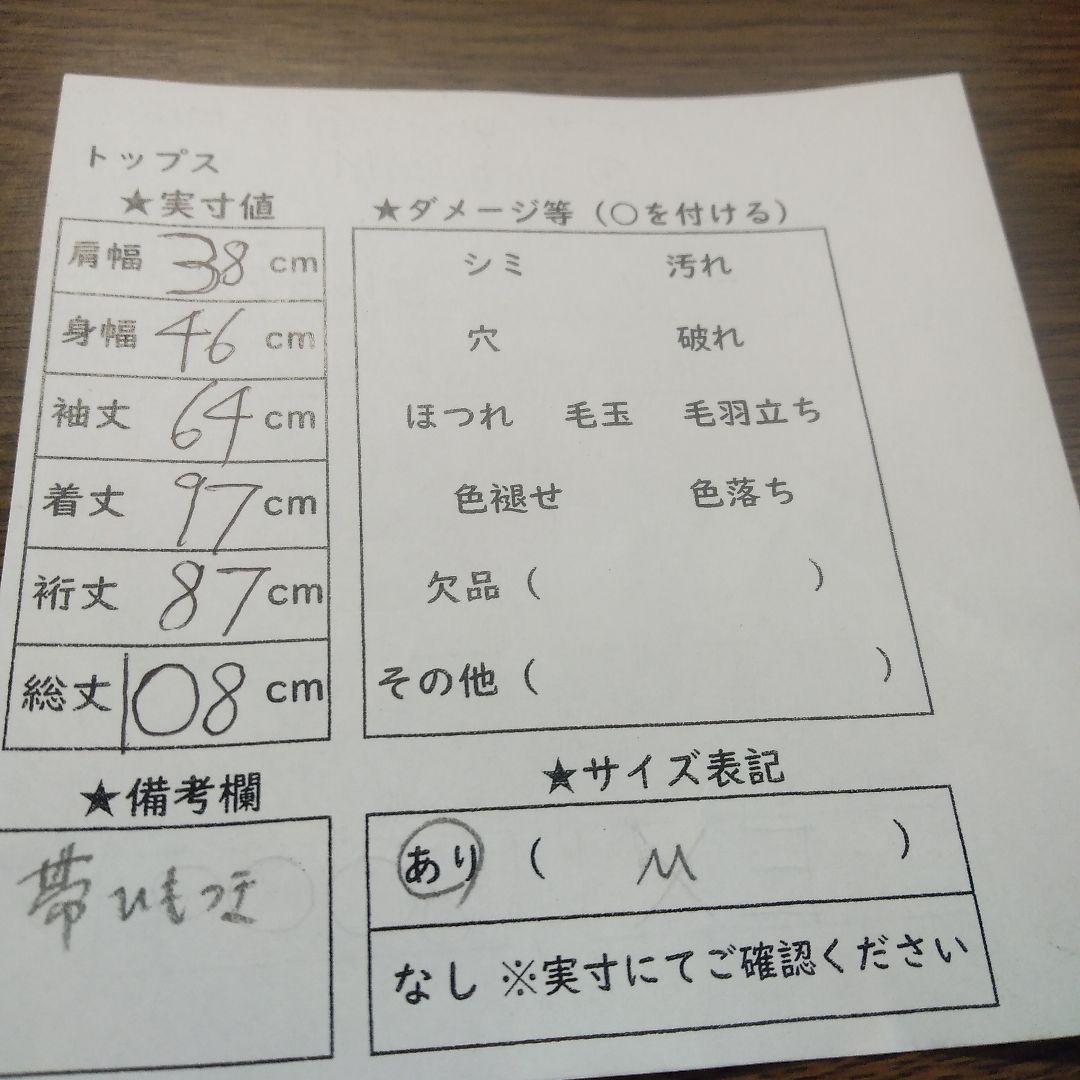 トップス
★実寸値
肩幅 38 cm
身幅 46 cm
袖丈 64 cm
着丈 97 cm
裄丈 87 cm
総丈 108 cm
★ダメージ等（○を付ける）
シミ 汚れ
穴 破れ
ほつれ 毛玉 毛羽立ち
色褪せ 色落ち
欠品（ ）
その他（ ）
★備考欄
帯ひもつき
★サイズ表記
あり（ M ）
なし ※実寸にてご確認ください